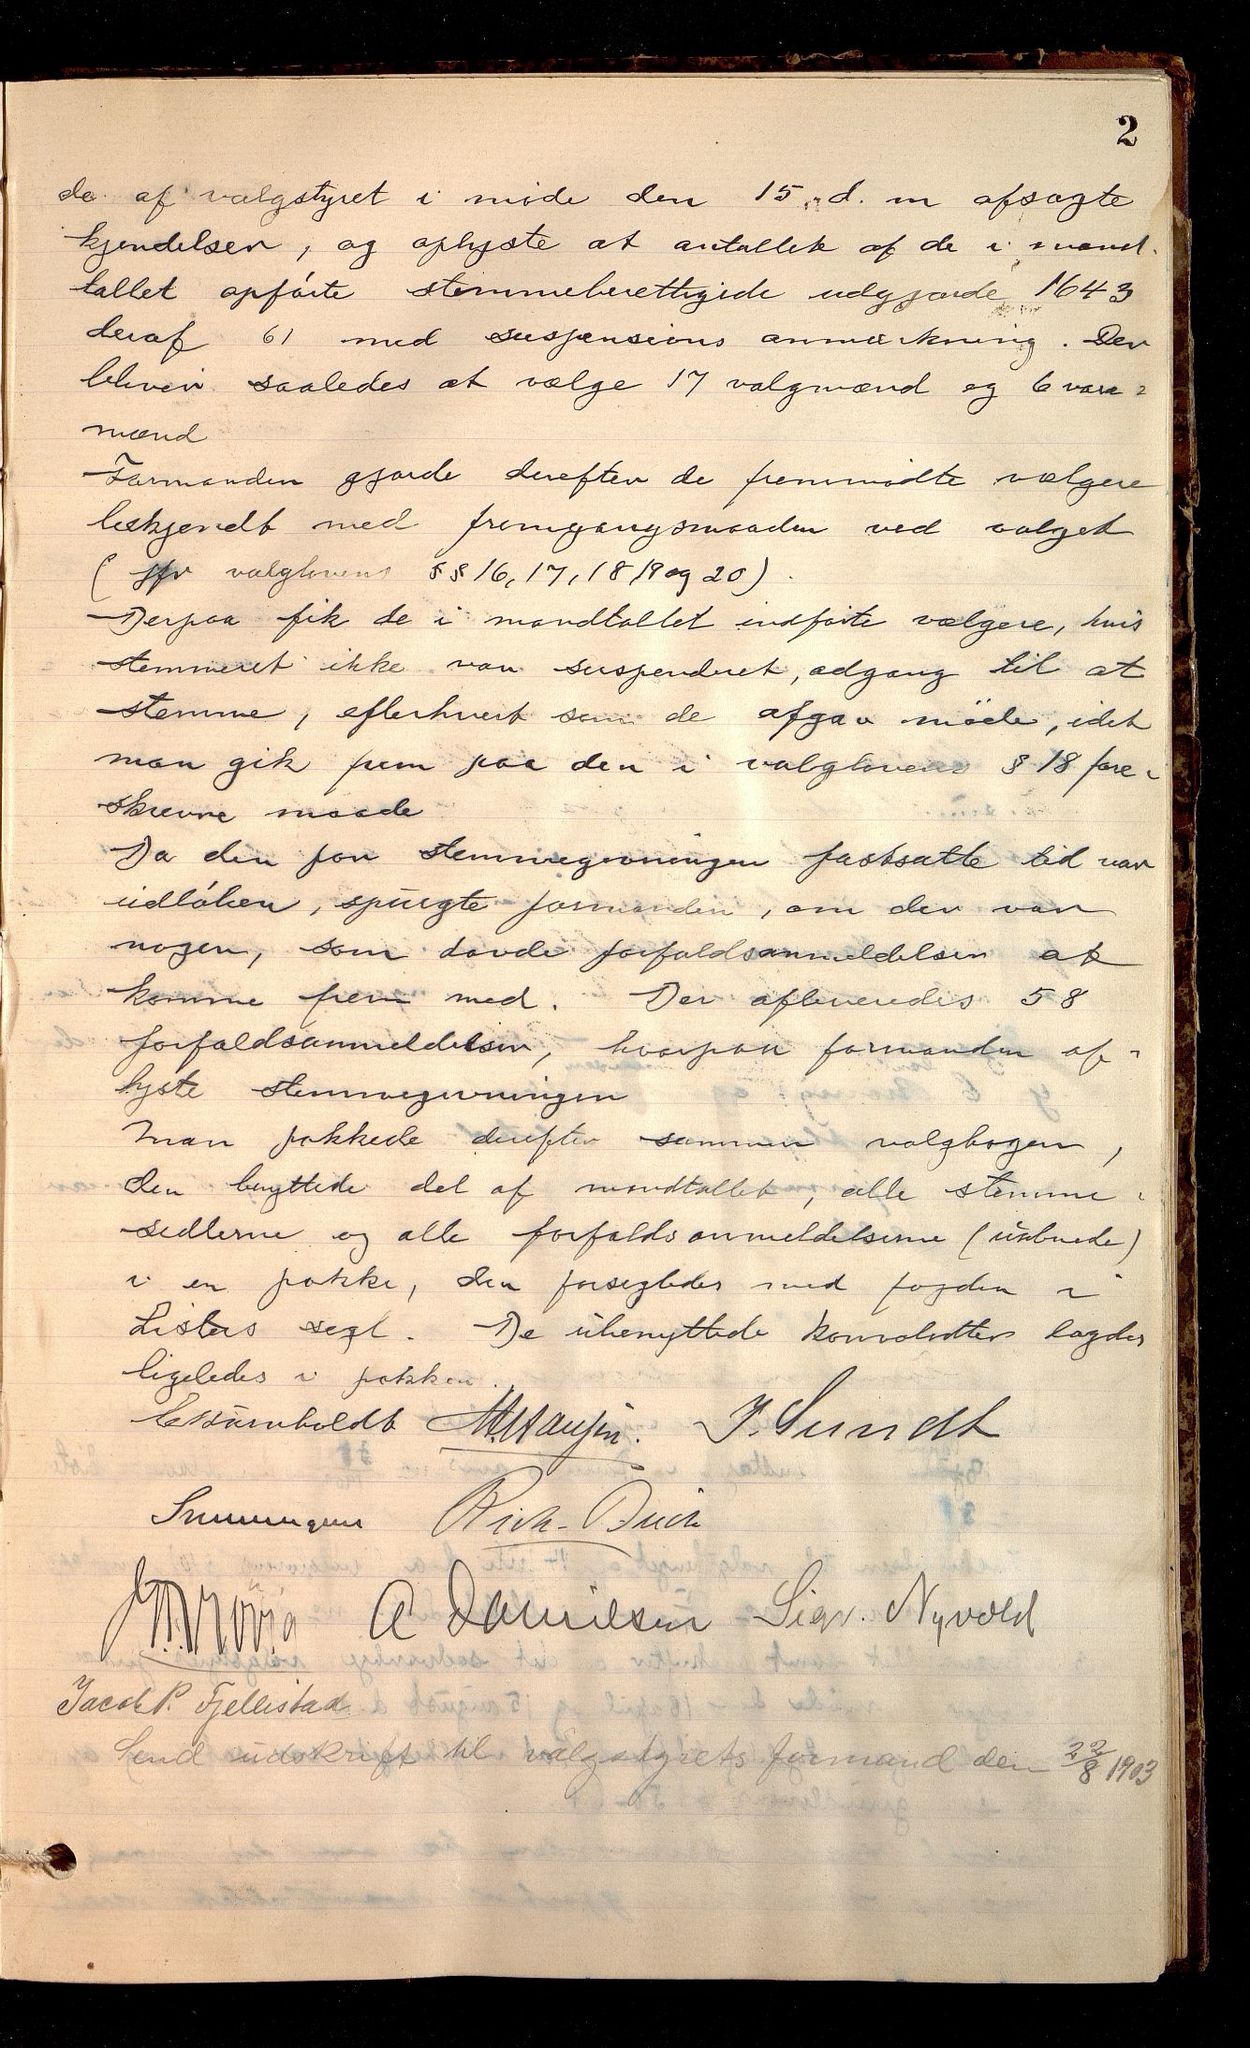 2
de af valgstyret i møde den 15. d. m afsagte
kjendelser, og oplyste at antallet af de i mand-
tallet opførte stemmeberettigede udgjorde 1643
deraf 61 med suspensions anmærkning. Der
bliver saaledes at vælge 17 valgmænd og 6 vara-
mænd
Formanden gjorde derefter de fremmødte vælgere
bekjendt med fremgangsmaaden ved valget
(jfr valglovens §§ 16, 17, 18 19 og 20).
Derpaa fik de i mandtallet indførte vælgere, hvis
stemmeret ikke var suspenderet, adgang til at
stemme, efterhvert som de afgav møde, idet
man gik frem paa den i valglovens § 18 fore-
skrevne maade
Da den for stemmegivningen fastsatte tid var
udløben, spurgte formanden, om der var
nogen, som havde forfaldsanmeldelser at
komme frem med. Der afleveredes 58
forfaldsanmeldelser, hvorpaa formanden af-
lyste stemmegivningen
Man pakkede derefter sammen valgbogen,
den benyttede del af mandtallet, alle stemme-
sedlerne og alle forfaldsanmeldelserne (uaabnede)
i en pakke, den forsegledes med fogden i
Listers segl. De ubenyttede konvolutter lagdes
ligeledes i pakken.
J. Sundt
Rich.
A Danielsen Sigv. Nyvold
Jacob P. Fjellestad
Send udskrift til valgstyrets formand den 22/8 1903